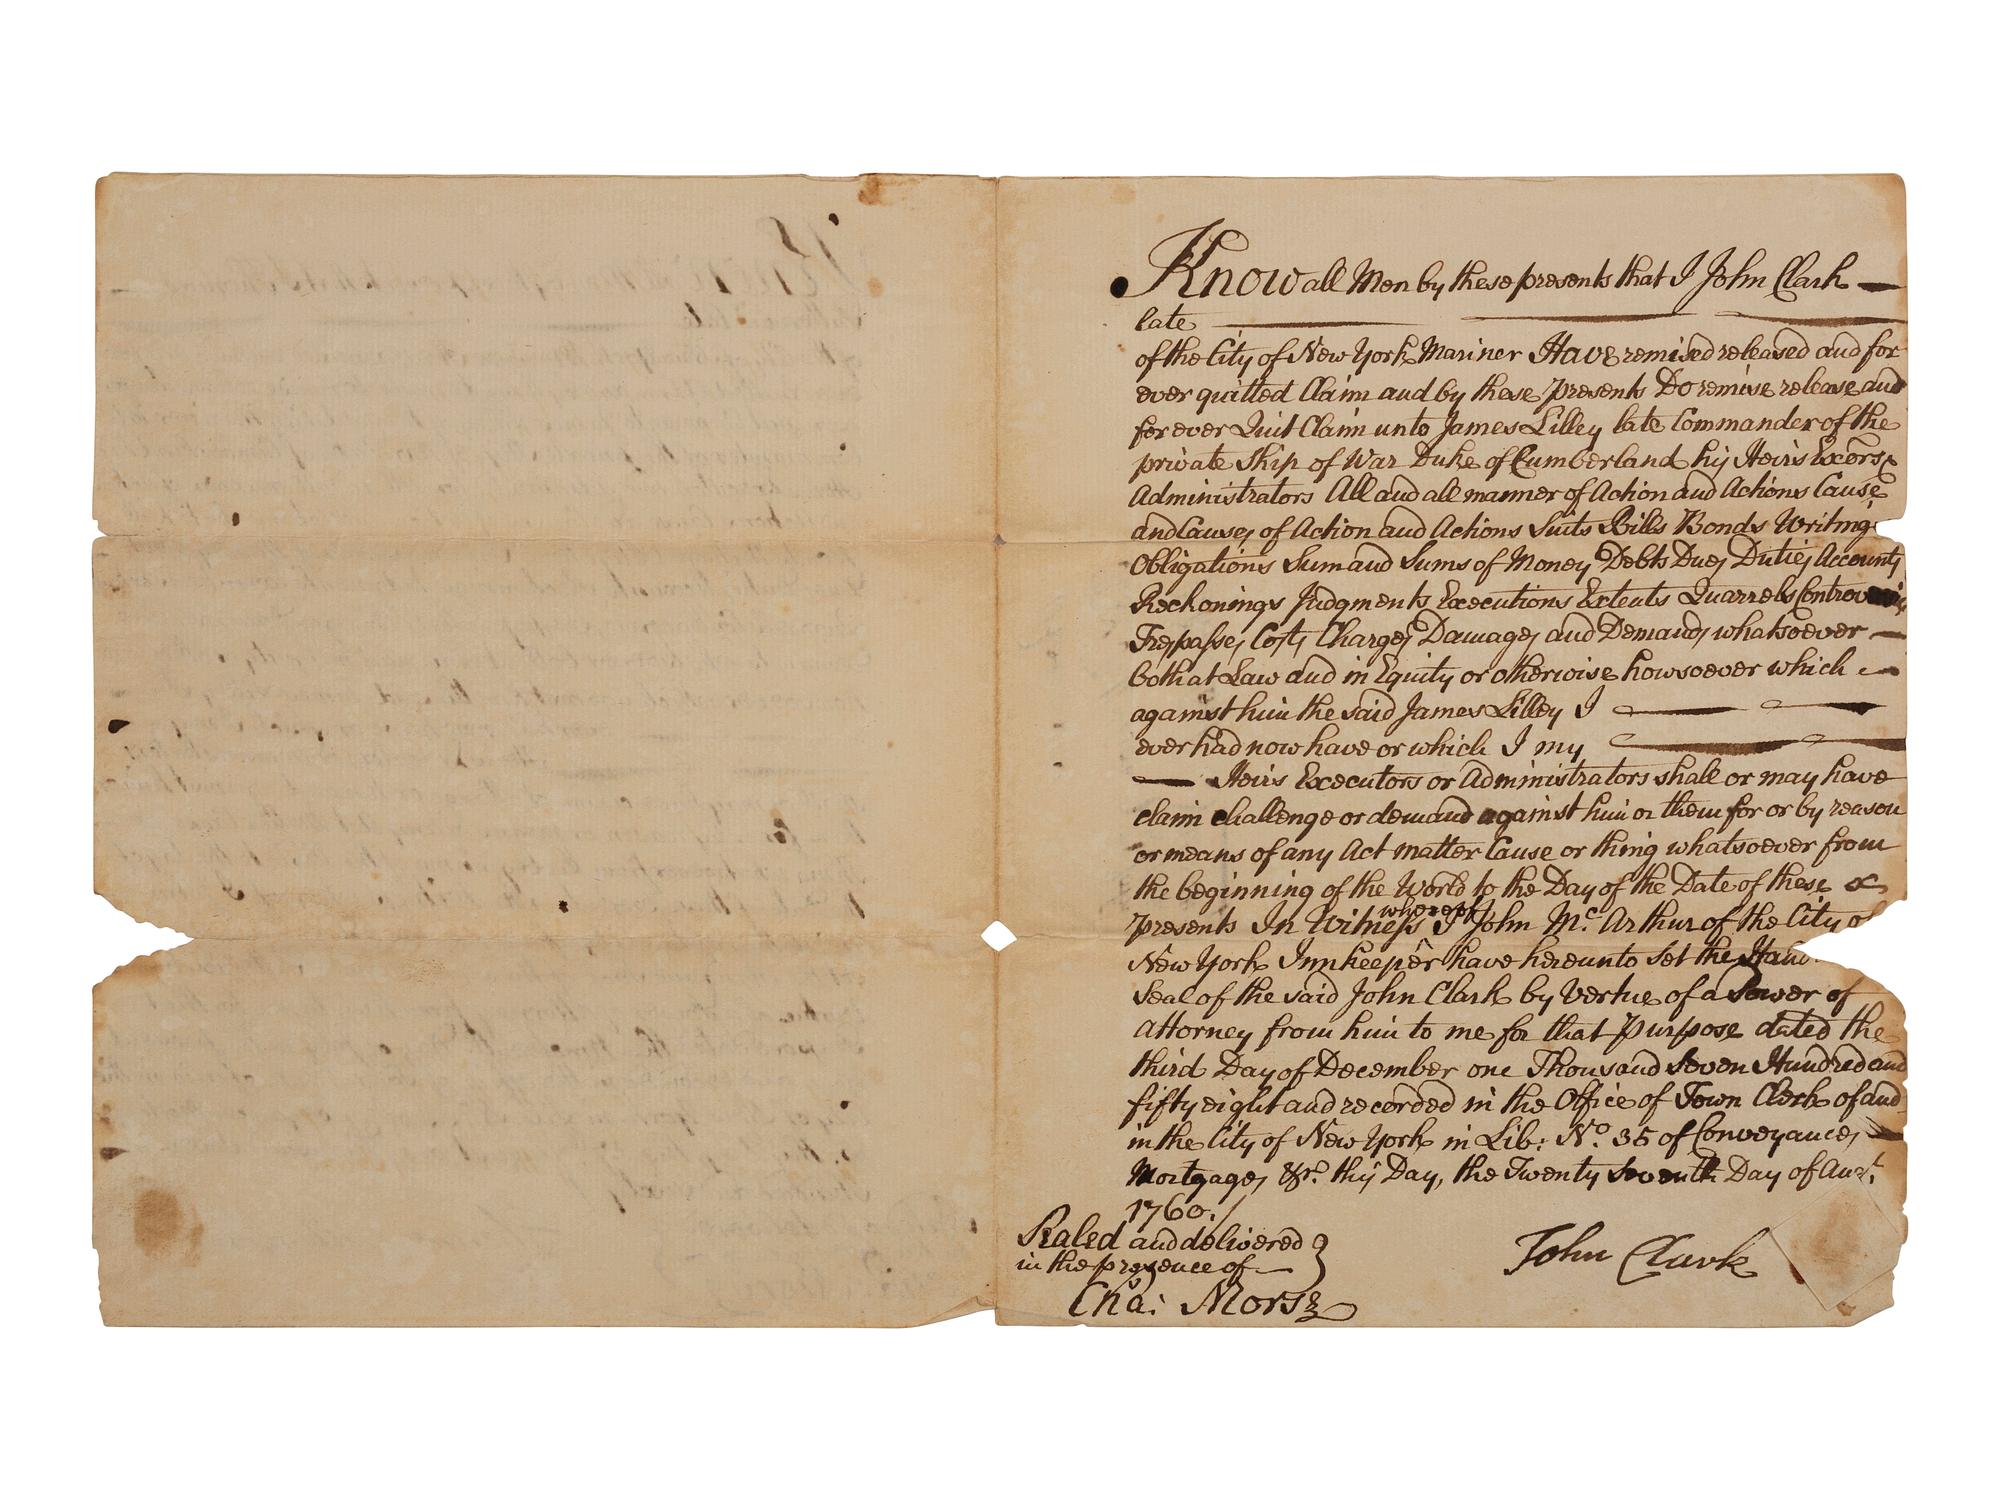 Know all Men by these presents that I John Clark
late
of the City of New York Mariner Have remised released and for
ever quitted Claim and by these presents Do remise release and
for ever Quit Claim unto James Lilley late Commander of the
private Ship of War Duke of Cumberland his Heirs Excors &
Administrators All and all manner of Action and Actions Cause
and Causes of Action and Actions Suits Bills Bonds Writings
Obligations Sum and Sums of Money Debts Dues Duties Accounts
Reckonings Judgments Executions Extents Quarrels
Trespasses Costs Charges Damages and Demands whatsoever
both at Law and in Equity or otherwise howsoever which
against him the said James Lilley I
ever had now have or which I my
Heirs Executors or Administrators shall or may have
claim challenge or demand against him or them for or by reason
or means of any Act matter Cause or thing whatsoever from
the beginning of the World to the Day of the Date of these
presents In Witness whereof I John Mc. Arthur of the City of
New York Innkeeper have hereunto set the Hand
Seal of the said John Clark by Vertue of a Power of
attorney from him to me for that Purpose dated the
third Day of December one Thousand Seven Hundred and
fifty eight and recorded in the Office of Town Clerk of and
in the City of New York in Lib: No. 35 of Conveyances
Mortgages &c. this Day, the Twenty Seventh Day of Augt.
1760.
Sealed and delivered
in the presence of
John Clark
Chas: Morse